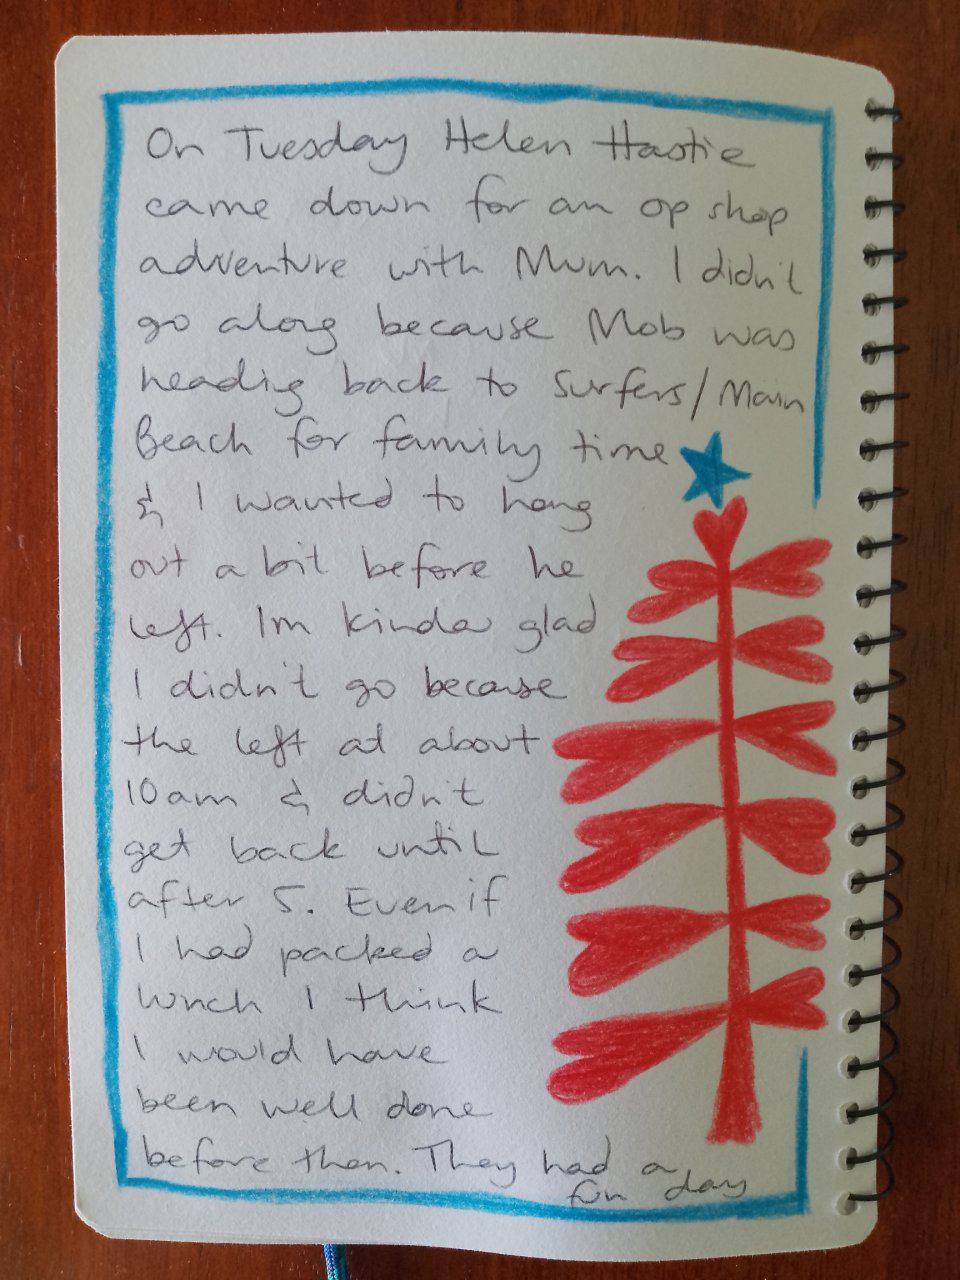 On Tuesday Helen Hastie
came down for an op shop
adventure with Mum. I didn't
go along because Mob was
heading back to Surfers/Main
Beach for family time
& I wanted to hang
out a bit before he
left. Im kinda glad
I didn't go because
the left at about
10am & didn't
get back until
after 5. Even if
I had packed a
lunch I think
I would have
been well done
before then. They had a
fun day